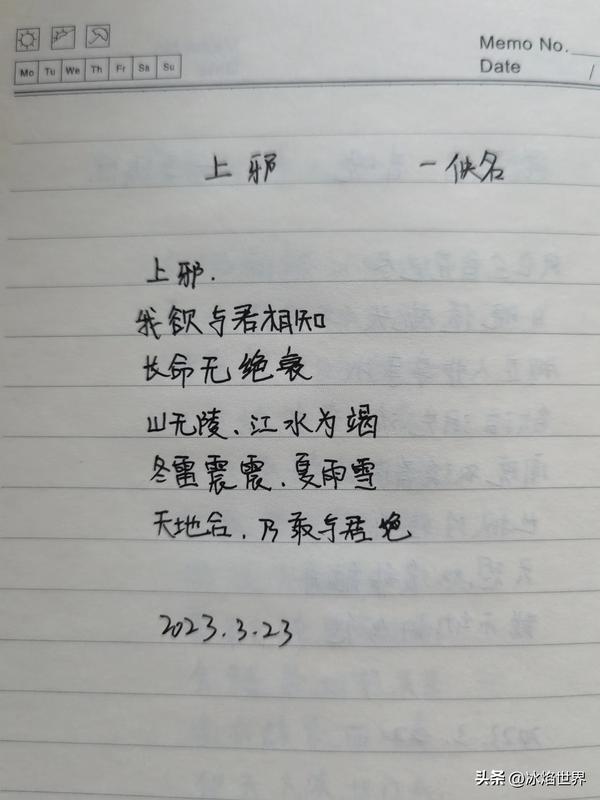 Memo No.
Mo Tu We Th Fr Sa Su
Date /
上邪 一佚名
上邪.
我欲与君相知
长命无绝衰
山无陵、江水为竭
冬雷震震、夏雨雪
天地合、乃敢与君绝
2023.3.23
头条@冰焰世界